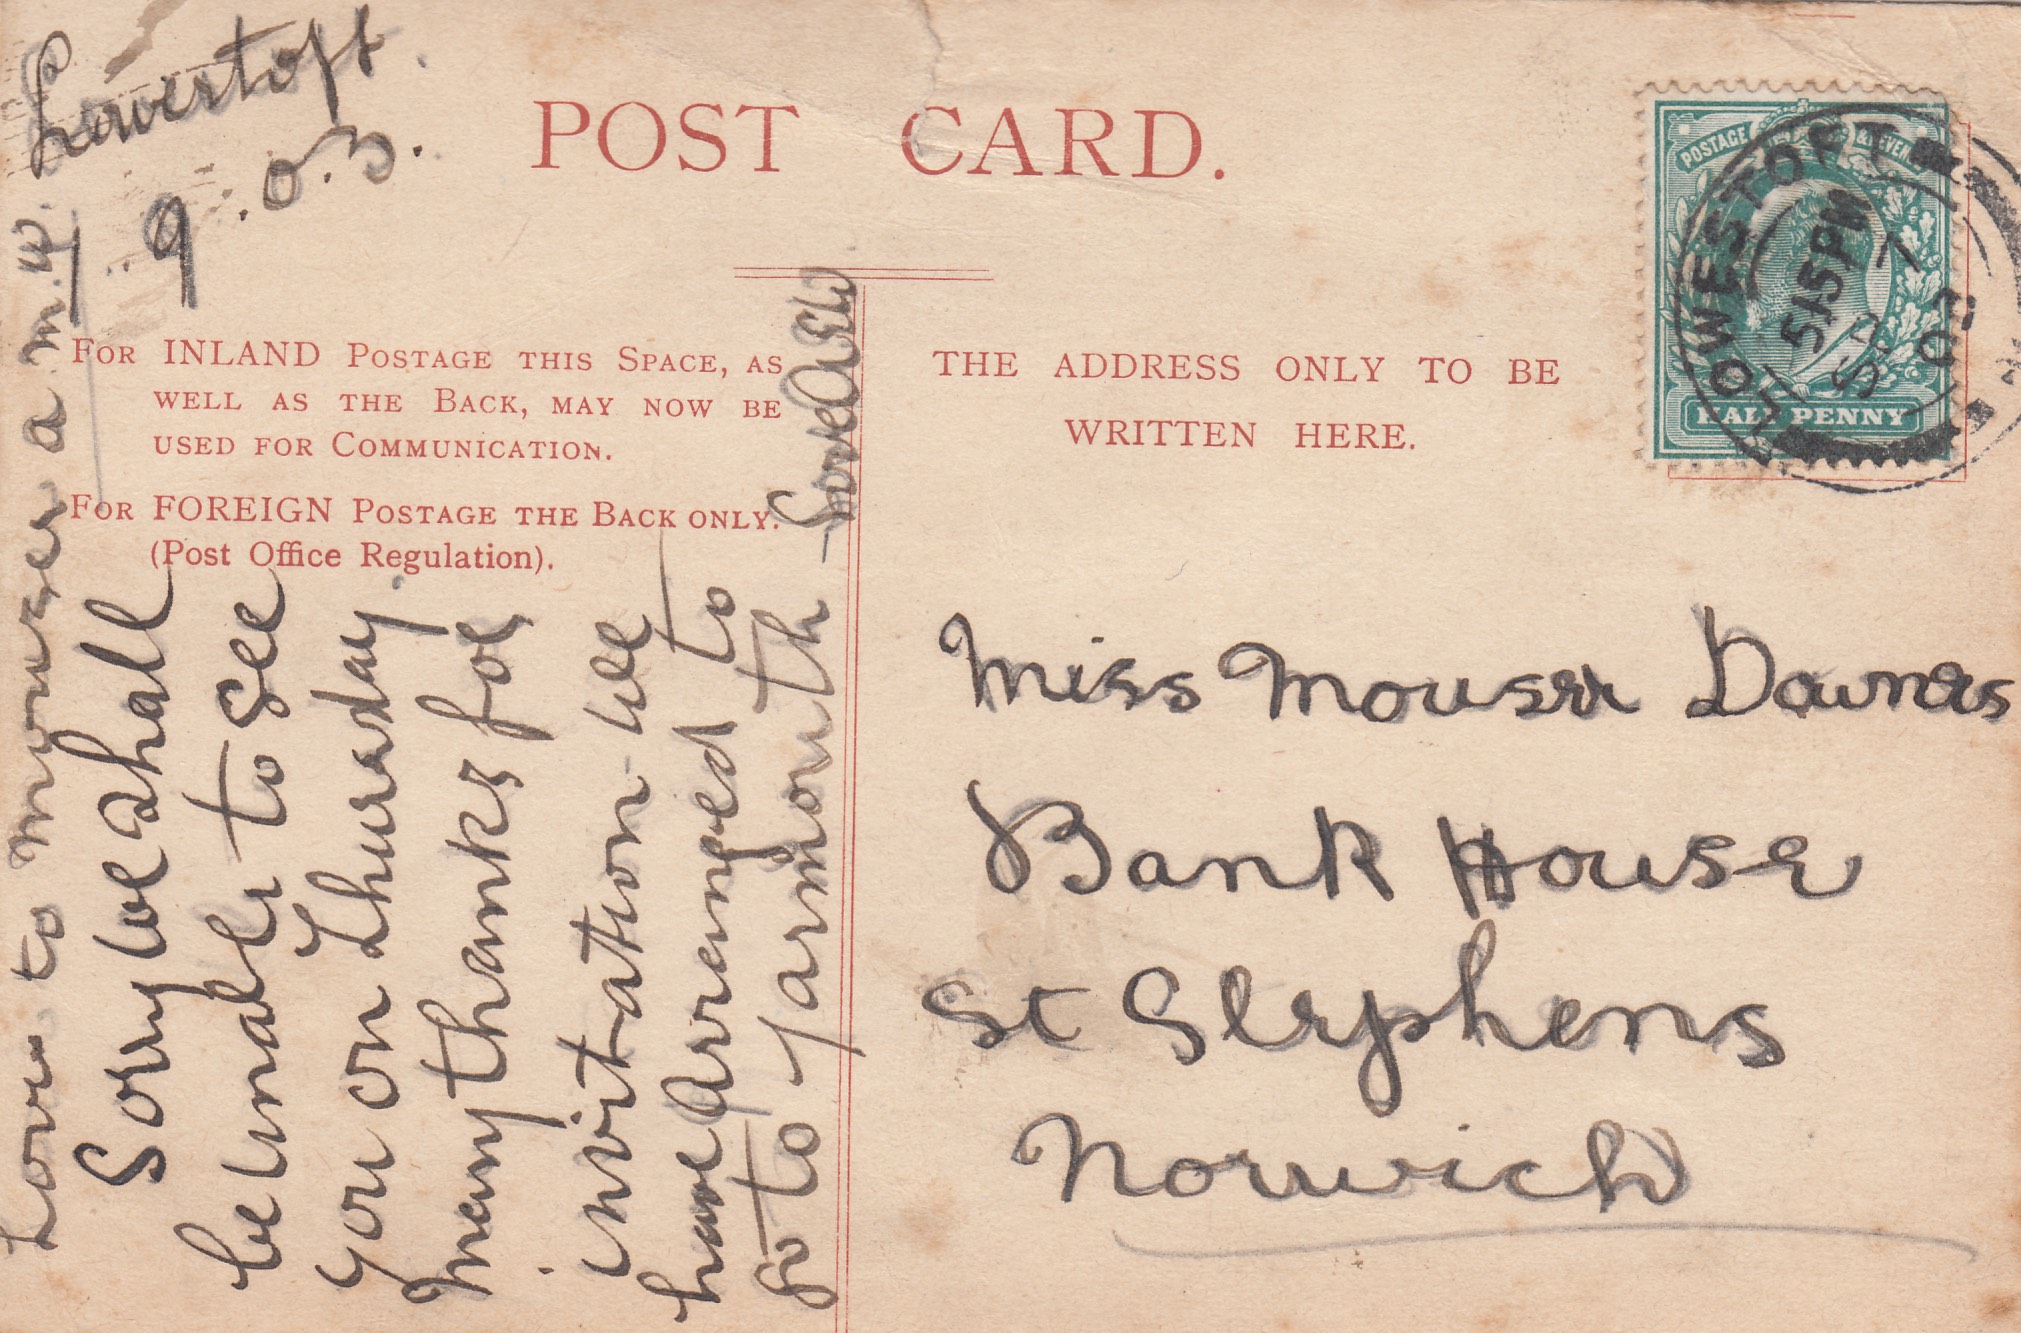 Lowestoft.
9.03.
POST CARD.
FOR INLAND POSTAGE THIS SPACE, AS
WELL AS THE BACK, MAY NOW BE
USED FOR COMMUNICATION.
FOR FOREIGN POSTAGE THE BACK ONLY.
(Post Office Regulation).
Sorry we shall
be unable to see
you on Thursday.
many thanks for
invitation we
have arranged to
go to yarmouth
Love to mouser a.m.
THE ADDRESS ONLY TO BE
WRITTEN HERE.
POSTAGE
HALF PENNY
LOWESTOFT
5 15 PM
SP 1
03
Miss Mouser Downes
Bank House
St Stephens
Norwich